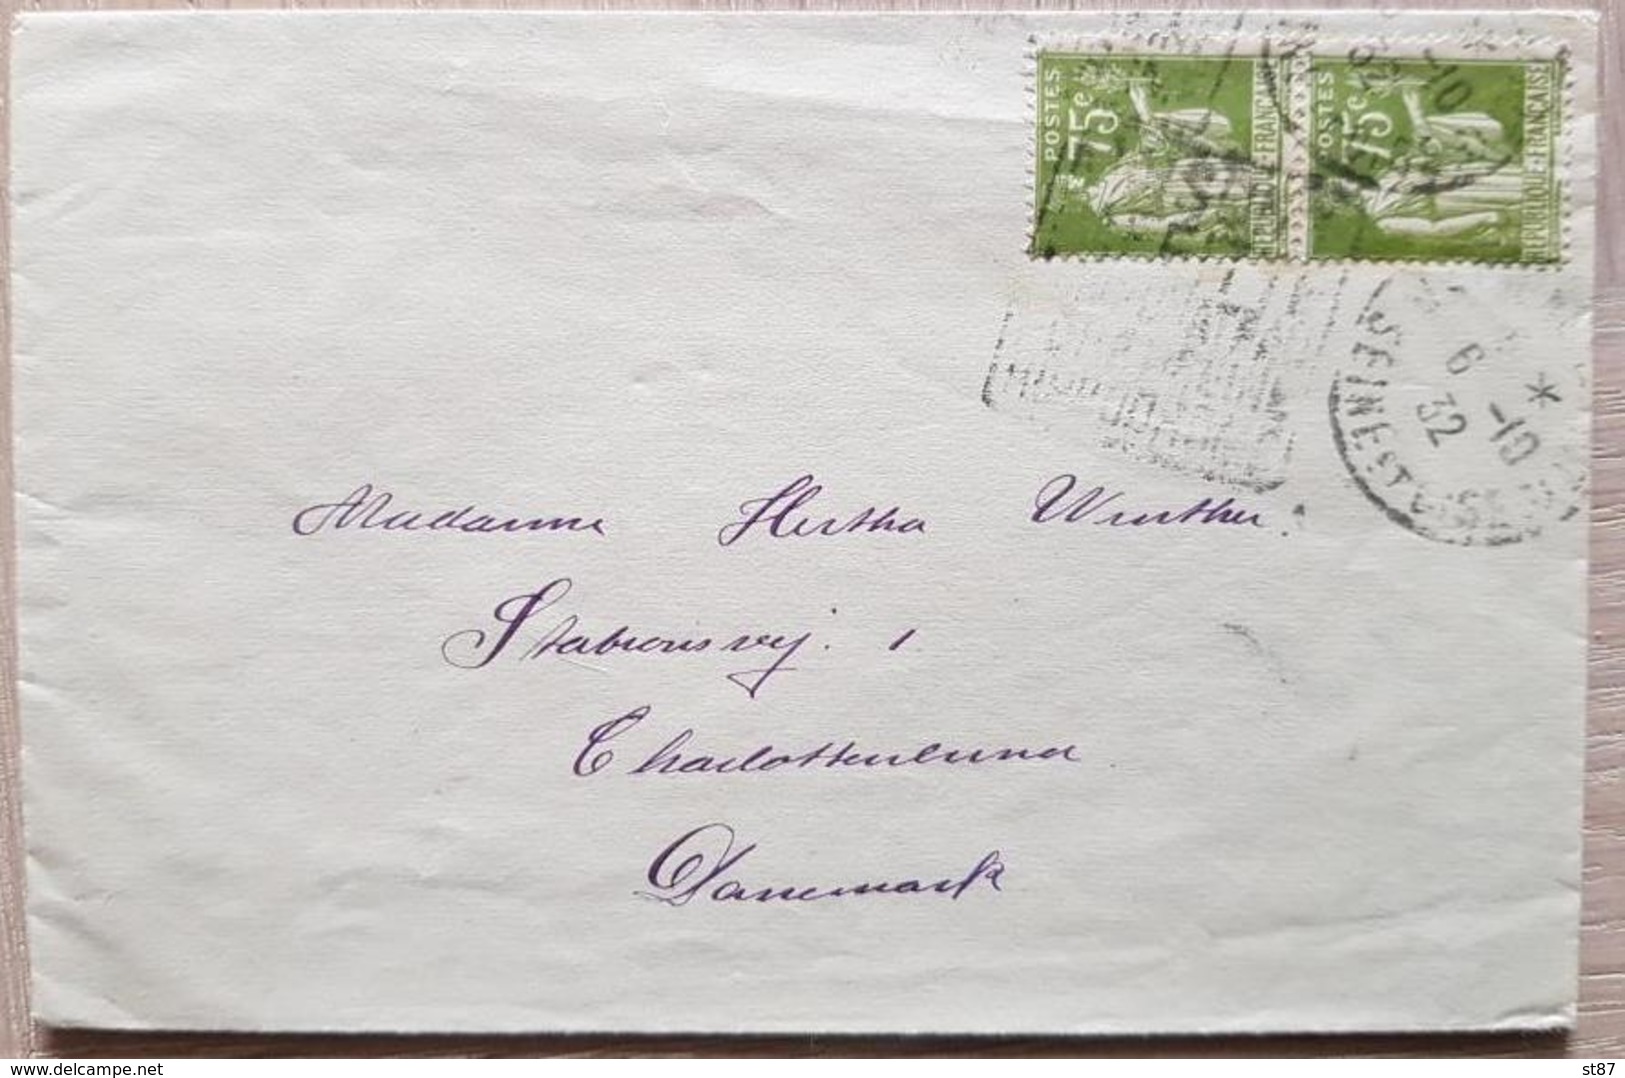 POSTES
75c
REPUBLIQUE-FRANÇAISE
POSTES
75c
REPUBLIQUE-FRANÇAISE
-10
6
-10
32
*
Madame Hertha Winther.
Stationsvej. 1
Charlottenlund
Danemark
www.delcampe.net
st87